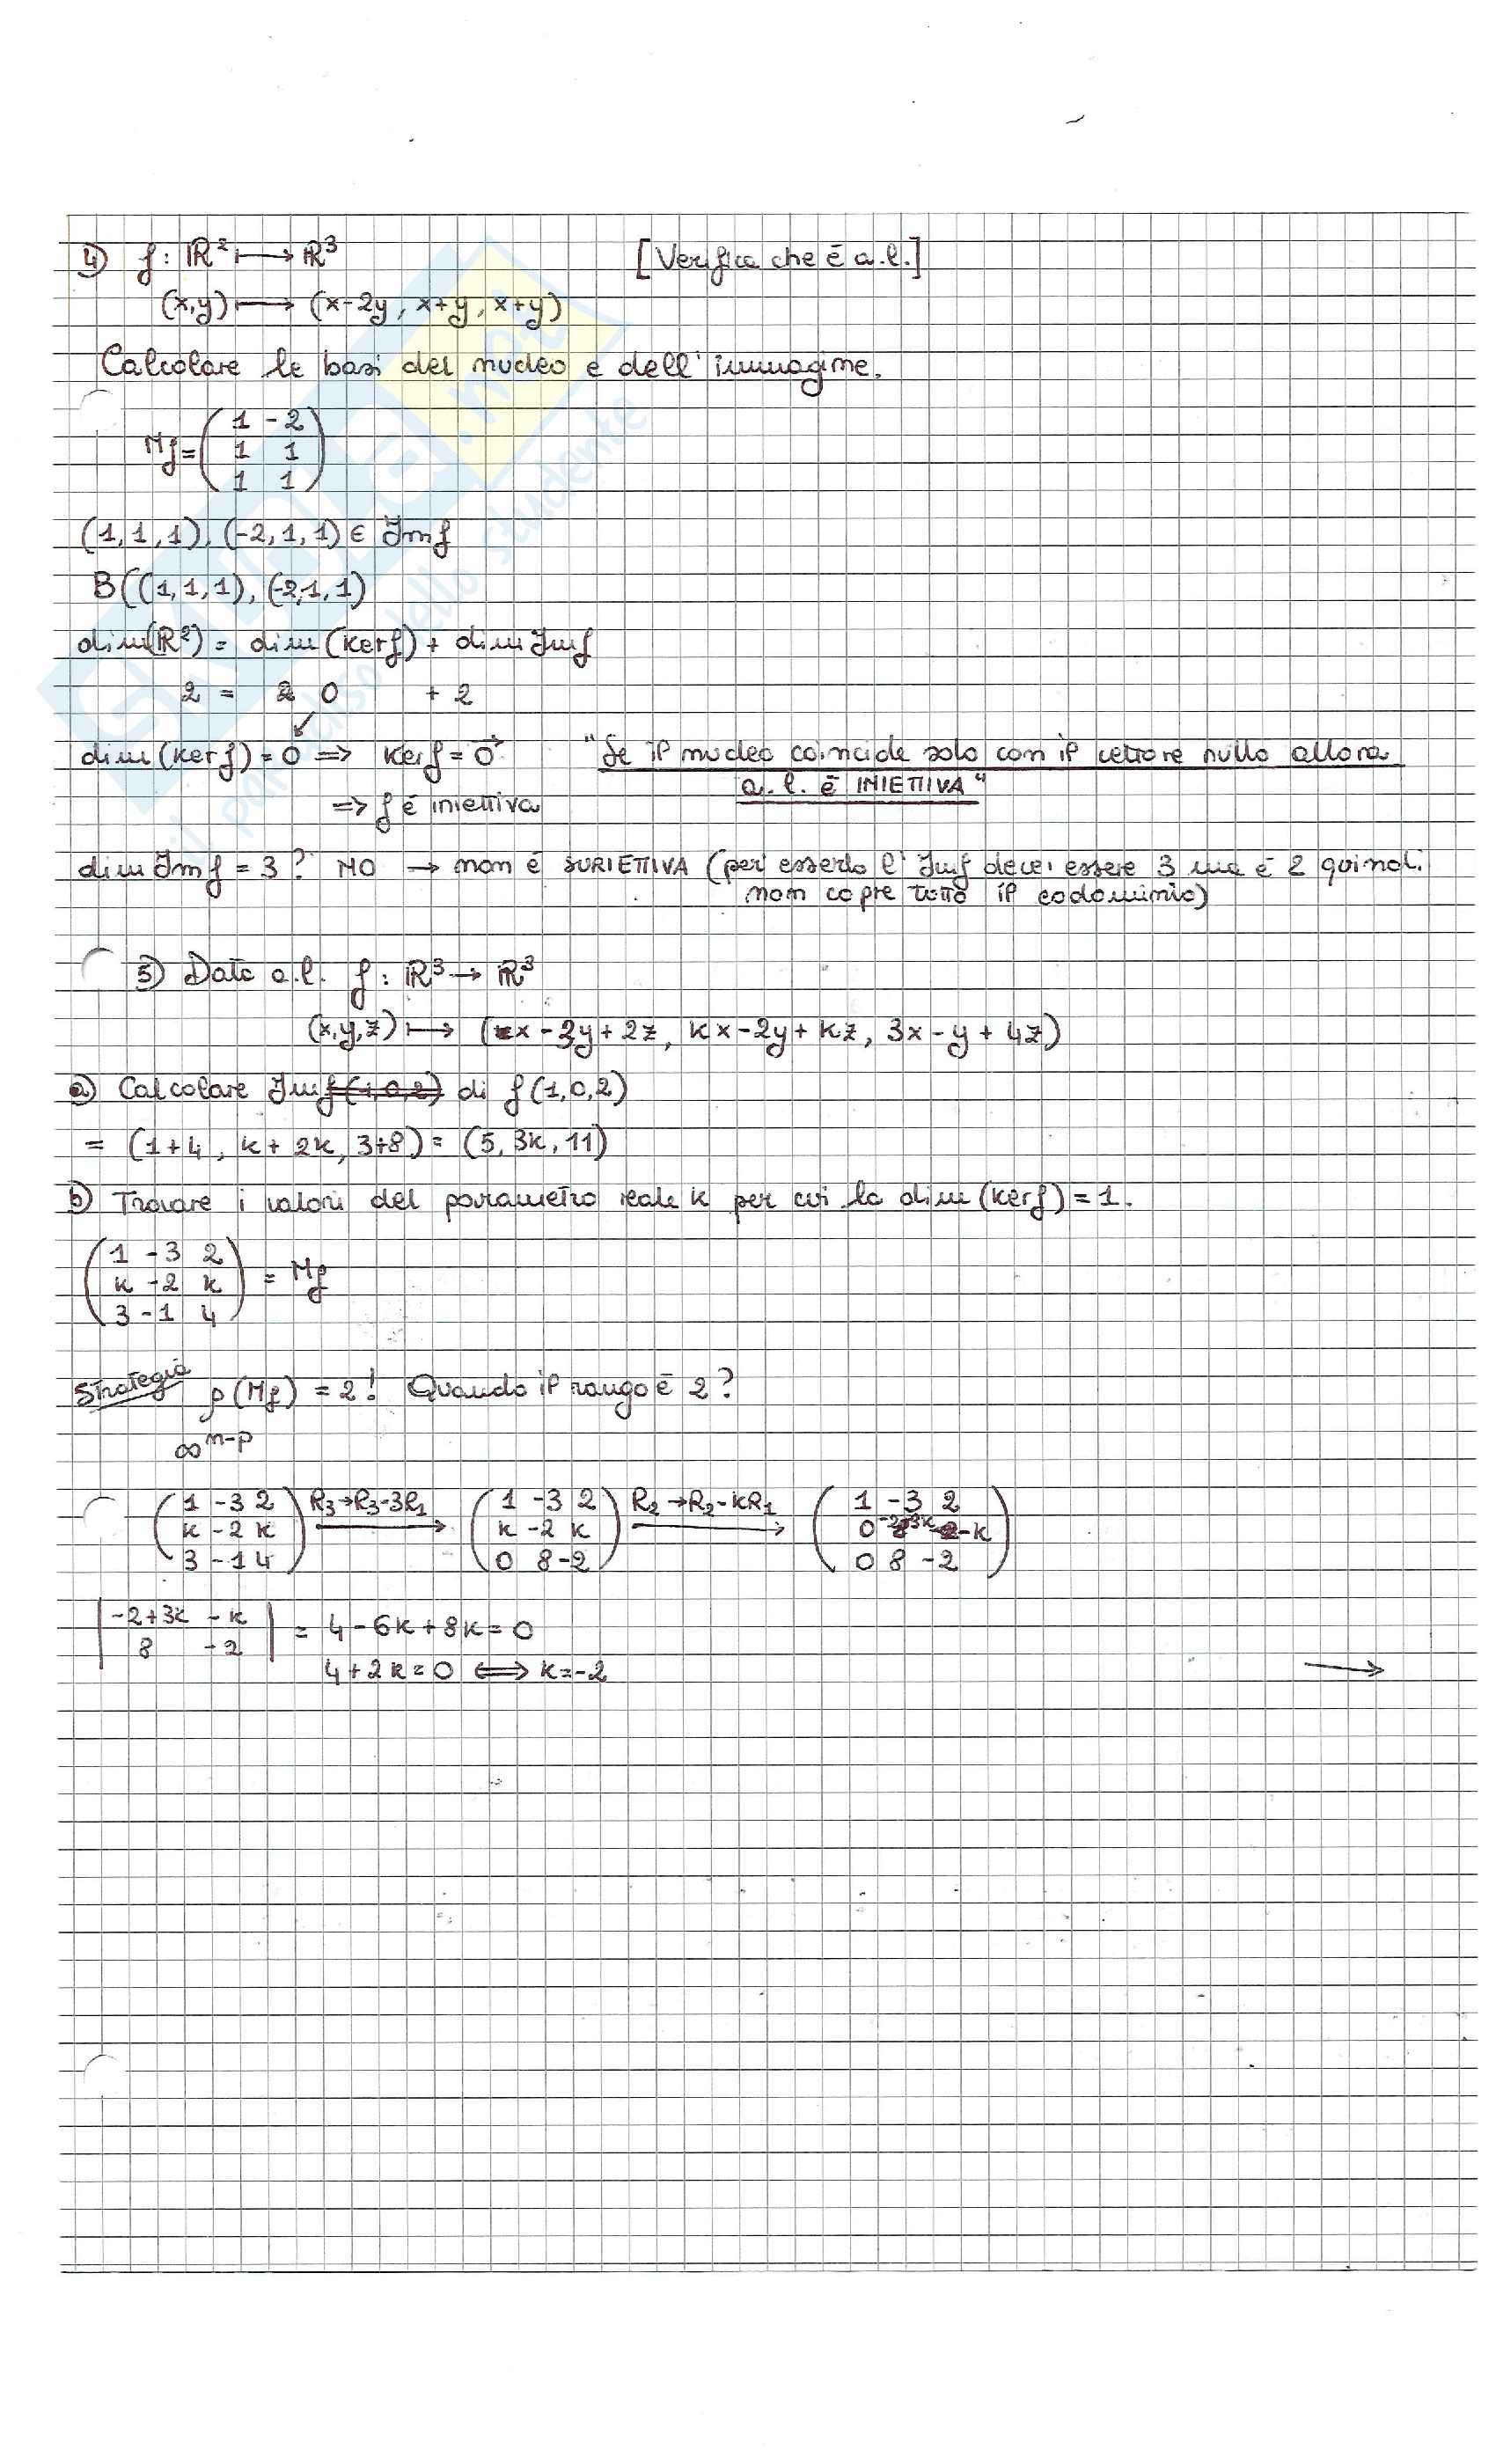 4) f: ℝ² ⟼ ℝ³ [Verifica che è a.l.]
(x,y) ⟼ (x-2y, x+y, x+y)
Calcolare le basi del nucleo e dell'immagine.
Mf = ( 1 -2
1 1
1 1 )
(1,1,1), (-2,1,1) ∈ Imf
B((1,1,1), (-2,1,1)
dim(ℝ²) = dim(kerf) + dim Imf
2 = 0 + 2
dim(kerf) = 0 => kerf = 0⃗ "Se il nucleo coincide solo con il vettore nullo allora
a.l. è INIETTIVA"
=> f è iniettiva
dim Imf = 3? NO → non è SURIETTIVA (per esserlo l'Imf deve essere 3 ma è 2 quindi
non copre tutto il codominio)
5) Data a.l. f: ℝ³ → ℝ³
(x,y,z) ⟼ (x-3y+2z, kx-2y+kz, 3x-y+4z)
a) Calcolare Im f(1,0,2) di f(1,0,2)
= (1+4, k+2k, 3+8) = (5, 3k, 11)
b) Trovare i valori del parametro reale k per cui la dim(kerf) = 1.
( 1 -3 2
k -2 k
3 -1 4 ) = Mf
Strategia ρ(Mf) = 2! Quando il rango è 2?
∞ⁿ⁻ᵖ
( 1 -3 2 R₃→R₃-3R₁ ( 1 -3 2 R₂→R₂-kR₁ ( 1 -3 2
k -2 k k -2 k 0 -2+3k -k
3 -1 4 ) 0 8 -2 ) 0 8 -2 )
| -2+3k -k
8 -2 | = 4-6k+8k=0
4+2k=0 ⟺ k=-2 →
SKUOLA.net
il paradiso dello studente